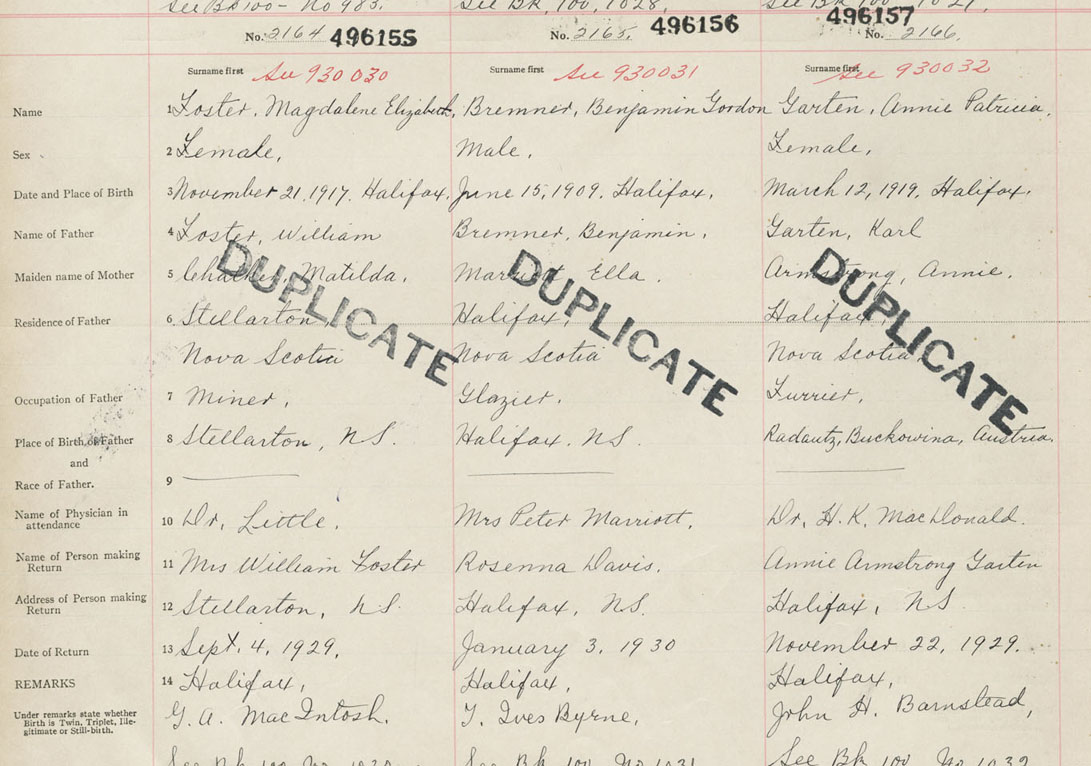 See Bk 100 - No 983. See Bk, 100, 1028,
No. 2164 496155 No. 2165. 496156 496157 No. 2166.
Surname first See 930030 Surname first See 930031 Surname first See 930032
Name 1 Foster, Magdalene Elizabeth, Bremner, Benjamin Gordon Garten, Annie Patricia,
Sex 2 Female, Male, Female,
Date and Place of Birth 3 November 21, 1917. Halifax, June 15, 1909. Halifax, March 12, 1919, Halifax.
Name of Father 4 Foster, William Bremner, Benjamin, Garten, Karl
Maiden name of Mother 5 Matilda, Ella. Armstrong, Annie.
DUPLICATE DUPLICATE DUPLICATE
Residence of Father 6 Stellarton Halifax, Halifax,
Nova Scotia Nova Scotia Nova Scotia
Occupation of Father 7 Miner, Glazier, Furrier,
Place of Birth of Father 8 Stellarton, N.S. Halifax. N.S. Radautz, Buckowina, Austria.
and
Race of Father. 9
Name of Physician in
attendance 10 Dr, Little, Mrs Peter Marriott, Dr. H. K. MacDonald.
Name of Person making
Return 11 Mrs William Foster Rosenna Davis, Annie Armstrong Garten
Address of Person making
Return 12 Stellarton, N.S. Halifax, N.S. Halifax, N.S.
Date of Return 13 Sept. 4, 1929, January 3, 1930 November 22, 1929.
REMARKS 14 Halifax, Halifax, Halifax,
Under remarks state whether
Birth is Twin, Triplet, Ille-
gitimate or Still-birth.
G. A. MacIntosh. T. Ives Byrne, John H. Barnstead,
See Bk 100 No See Bk 100 No 1031 See Bk 100 No 1032